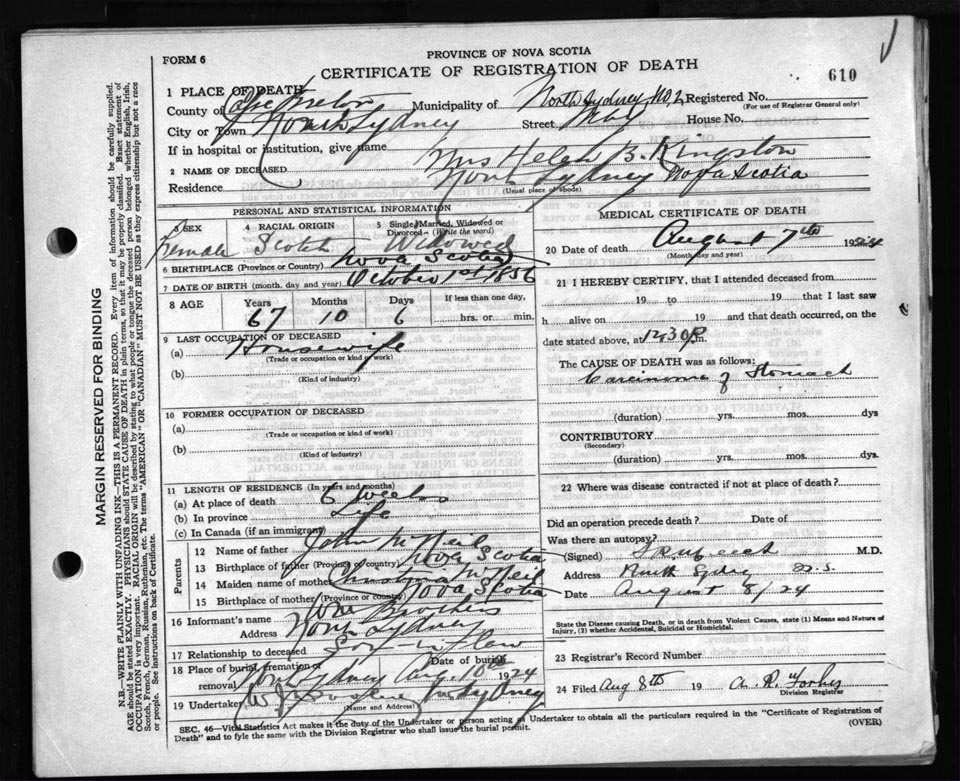 FORM 6
PROVINCE OF NOVA SCOTIA
CERTIFICATE OF REGISTRATION OF DEATH
610
1 PLACE OF DEATH
County of Cape Breton Municipality of North Sydney NO2 Registered No.
(For use of Registrar General only)
City or Town North Sydney Street May House No.
If in hospital or institution, give name
2 NAME OF DECEASED Mrs Helen B. Kingston
Residence North Sydney Nova Scotia
(Usual place of abode)
PERSONAL AND STATISTICAL INFORMATION
3 SEX Female
4 RACIAL ORIGIN Scotch
5 Single, Married, Widowed or Divorced—(Write the word) Widowed
6 BIRTHPLACE (Province or Country) Nova Scotia
7 DATE OF BIRTH (month, day and year) October 1st 1856
8 AGE Years Months Days If less than one day,
67 10 6 ......hrs. or ......min.
9 LAST OCCUPATION OF DECEASED
(a) Housewife
(Trade or occupation or kind of work)
(b)
(Kind of industry)
10 FORMER OCCUPATION OF DECEASED
(a)
(Trade or occupation or kind of work)
(b)
(Kind of industry)
11 LENGTH OF RESIDENCE (In years and months)
(a) At place of death 6 weeks
(b) In province Life
(c) In Canada (if an immigrant)
Parents
12 Name of father John McNeil
13 Birthplace of father (Province or country) Nova Scotia
14 Maiden name of mother McNeil
15 Birthplace of mother (Province or country) Nova Scotia
16 Informant's name Wm Brothers
Address North Sydney
17 Relationship to deceased Son in law
18 Place of burial, cremation or removal North Sydney Date of burial Aug. 10th 1924
19 Undertaker W. J. N Sydney
(Name and Address)
MEDICAL CERTIFICATE OF DEATH
20 Date of death August 7th 19
(Month day and year)
21 I HEREBY CERTIFY, that I attended deceased from
19 to 19 that I last saw
h alive on 19 and that death occurred, on
date stated above, at 12.30 P m.
The CAUSE OF DEATH was as follows:
Carcinoma of Stomach
(duration) yrs. mos. dys
CONTRIBUTORY
(Secondary)
(duration) yrs. mos. dys.
22 Where was disease contracted if not at place of death?
Did an operation precede death? Date of
Was there an autopsy?
(Signed) M.D.
Address North Sydney N.S.
Date August 8/24
State the Disease causing Death, or in death from Violent Causes, state (1) Means and Nature of Injury, (2) whether Accidental, Suicidal or Homicidal.
23 Registrar's Record Number
24 Filed Aug 8th 19 A. R. Forbes
Division Registrar
SEC. 46—Vital Statistics Act makes it the duty of the Undertaker or person acting as Undertaker to obtain all the particulars required in the "Certificate of Registration of
Death" and to fyle the same with the Division Registrar who shall issue the burial permit.
(OVER)
MARGIN RESERVED FOR BINDING
N.B.—WRITE PLAINLY WITH UNFADING INK—THIS IS A PERMANENT RECORD. Every item of information should be carefully supplied.
AGE should be stated EXACTLY. PHYSICIANS should STATE CAUSE OF DEATH in plain terms, so that it may be properly classified. Exact statement of
OCCUPATION is very important. RACIAL ORIGIN will be described by stating to what people or tongue the deceased person belonged whether English, Irish,
Scotch, French, German, Russian, Ruthenian, etc. The terms "AMERICAN" OR "CANADIAN" MUST NOT BE USED as they express citizenship but not a race
or people. See instructions on back of Certificate.